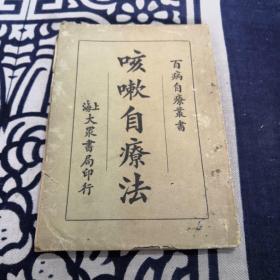 百病自療叢書
咳嗽自療法
上海大眾書局印行